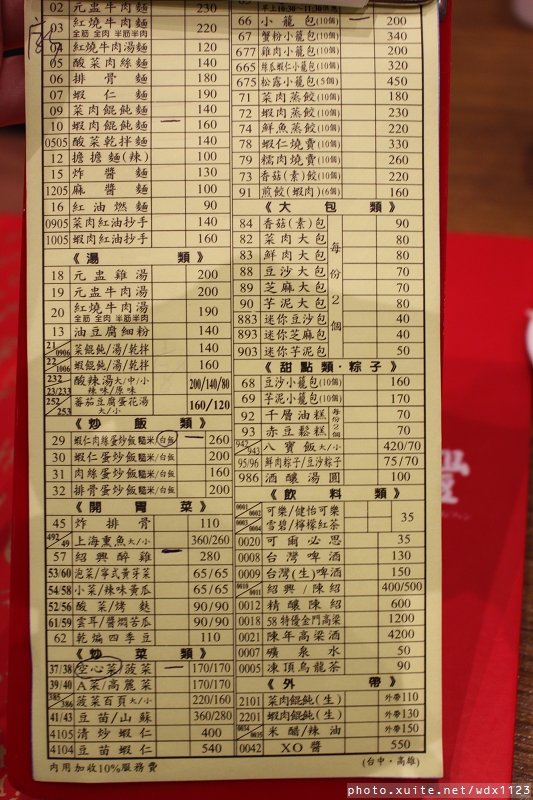 02 元盅蝦麵 230
03 紅燒牛肉麵 全筋 全肉 半筋半肉 220
04 紅燒牛肉湯麵 120
05 酸菜肉絲麵 140
06 排骨麵 180
07 蝦仁麵 190
09 菜肉餛飩麵 140
10 蝦肉餛飩麵 160
0505 酸菜乾拌麵 140
12 擔擔麵(辣) 100
15 炸醬麵 130
1205 麻醬麵 100
16 紅油燃麵 90
0905 菜肉紅油抄手 140
1005 蝦肉紅油抄手 160
《湯類》
18 元盅雞湯 200
19 元盅牛肉湯 200
20 紅燒牛肉湯 全筋 全肉 半筋半肉 190
13 油豆腐細粉 140
21/0906 菜餛飩/湯/乾拌 140
22/1006 蝦餛飩/湯/乾拌 160
232 23/233 酸辣湯大/中/小 辣味/原味 200/140/80
252/253 蕃茄豆腐蛋花湯 大/小 160/120
《炒飯類》
29 蝦仁肉絲蛋炒飯糙米/白飯 260
30 蝦仁蛋炒飯糙米/白飯 200
31 肉絲蛋炒飯糙米/白飯 160
32 排骨蛋炒飯糙米/白飯 200
《開胃菜》
45 炸排骨 110
492/49 上海熏魚大/小 360/260
57 紹興醉雞 280
53/60 泡菜/寧式黃芽菜 65/65
54/58 小菜/辣味黃瓜 65/65
52/56 酸菜/烤麩 90/90
61/59 雲耳/醬燜苦瓜 90/90
62 乾煸四季豆 110
《炒菜類》
37/38 空心菜/菠菜 170/170
39/40 A菜/高麗菜 170/170
385/386 菠菜百頁大/小 220/160
41/43 豆苗/山蘇 360/280
4105 清炒蝦仁 400
4104 豆苗蝦仁 540
內用加收10%服務費
早上10:30~11:30供應
66 小籠包(10個) 200
67 蟹粉小籠包(10個) 340
677 雞肉小籠包(10個) 220
665 絲瓜蝦仁小籠包(10個) 320
675 松露小籠包(5個) 450
71 菜肉蒸餃(10個) 180
72 蝦肉蒸餃(10個) 230
74 鮮魚蒸餃(10個) 220
78 蝦仁燒賣(10個) 330
79 糯肉燒賣(10個) 260
73 香菇(素)餃(10個) 220
91 煎餃(蝦肉)(6個) 160
《大包類》
每份2個
84 香菇(素)包 90
82 菜肉大包 80
83 鮮肉大包 80
88 豆沙大包 70
89 芝麻大包 70
90 芋泥大包 80
883 迷你豆沙包 40
893 迷你芝麻包 40
903 迷你芋泥包 50
《甜點類·粽子》
68 豆沙小籠包(10個) 160
69 芋泥小籠包(10個) 170
92 千層油糕 每份2個 70
93 赤豆鬆糕 70
942/943 八寶飯大/小 420/70
95/96 鮮肉粽子/豆沙粽子 75/70
986 酒釀湯圓 100
《飲料類》
0001/0002 可樂/健怡可樂 35
0003/0004 雪碧/檸檬紅茶
0020 可爾必思 35
0008 台灣啤酒 130
0009 台灣(生)啤酒 150
0010/0011 紹興/陳紹 400/500
0012 精釀陳紹 600
0018 58特優金門高梁 1200
0021 陳年高梁酒 4200
0007 礦泉水 50
0005 凍頂烏龍茶 90
《外帶》
2101 菜肉餛飩(生) 外帶110
2201 蝦肉餛飩(生) 外帶130
0034/0035 米醋/辣油 外帶150
0042 XO醬 550
(台中·高雄)
photo.xuite.net/wdx1123